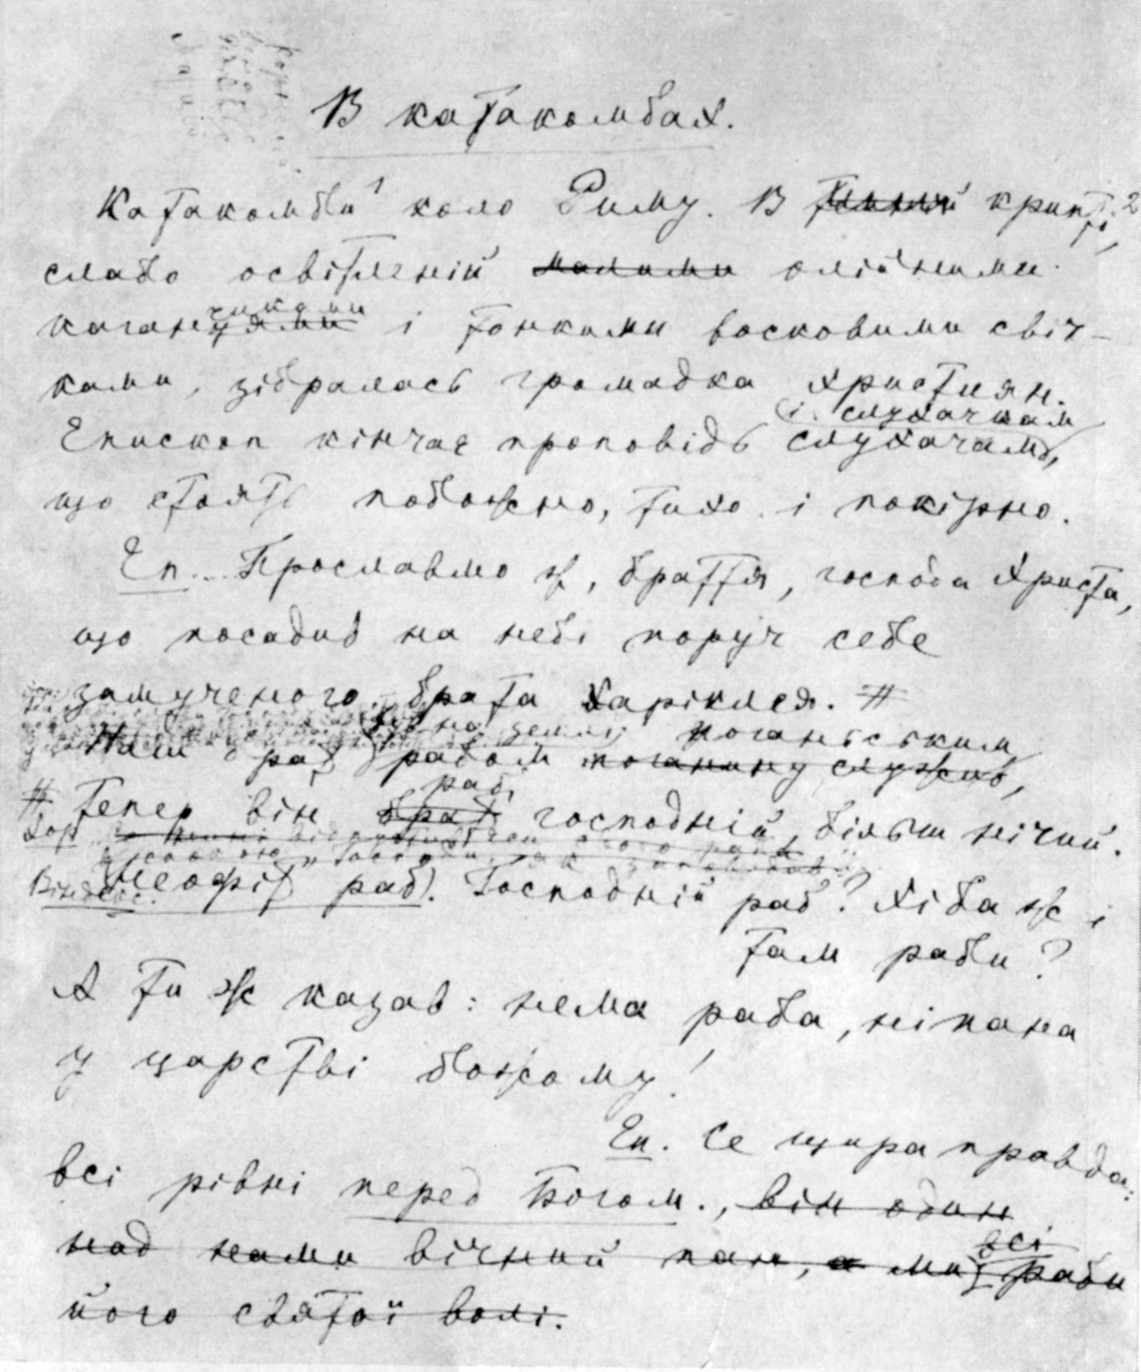 В катакомбах.
Катакомби коло Риму. В темній крипті,
слабо освітленій малими олійними
чиками
каганцями і тонкими восковими свіч-
ками, зібралась громадка християн.
і слухачкам
Епископ кінчає проповідь слухачам,
що стоять побожно, тихо і покірно.
Еп. Прославмо ж, браття, господа Христа,
що посадив на небі поруч себе
замученого брата Харіклея. #
на землі поганьським
Наш брат рабом поганину служив,
раб
# Тепер він брат господній, більш нічий.
Неофіт раб). Господній раб? Хіба ж і
там раби?
А ти ж казав: нема раба, ні пана
у царстві божому!
Еп. Се щира правда:
всі рівні перед Богом., він один
всі
над нами вічний пан, а ми раби
його святої волі.